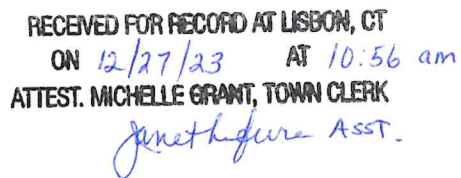 RECEIVED FOR RECORD AT LISBON, CT
ON 12/27/23 AT 10:56 am
ATTEST. MICHELLE GRANT, TOWN CLERK
ASST.